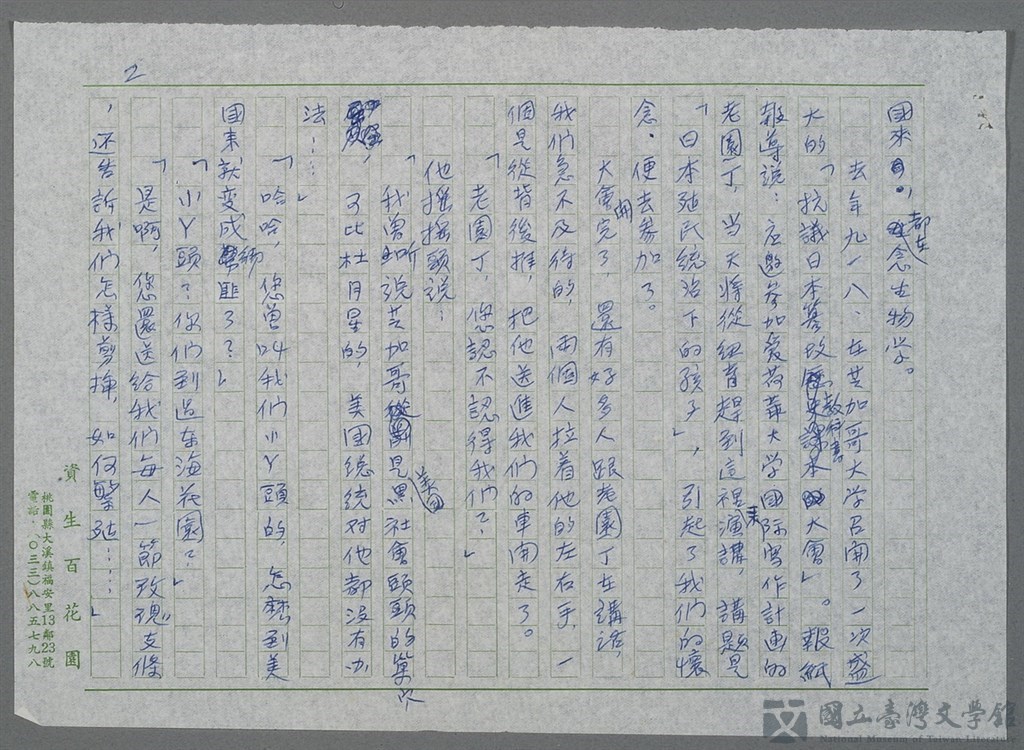 2
國來，都在念生物学。
去年九一八、在芝加哥大学召開了一次盛
大的「抗議日本篡改教科書大會」。報紙
報導説：应邀参加爱荷華大学國际寫作計画的
老園丁，当天將從紐育趕到這裡來演講，講題是
「日本殖民統治下的孩子」，引起了我們的懷
念．便去参加了。
大會開完了，還有好多人跟老園丁在講話，
我們急不及待的，兩個人拉着他的左右手，一
個是從背後推，把他送進我們的車開走了。
「老園丁，您認不認得我們？」
他摇摇頭説：
「我曾听説芝加哥是美國黑社會頭頭的巢穴
，可比杜月笙的，美国総统对他都没有办
法……」
「哈哈，您曾叫我們小丫頭的，怎麽到美
國來就变成綁匪了？」
「小丫頭？你們到過东海花園？」
「是啊，您還送給我們每人一節玫瑰支條
，还告訴我們怎樣剪揷，如何繁殖……」
資生百花園
桃園縣大溪鎮福安里13鄰23號
電話．（〇三三）八八五七九八
國立臺灣文學館
National Museum of Taiwan Literature